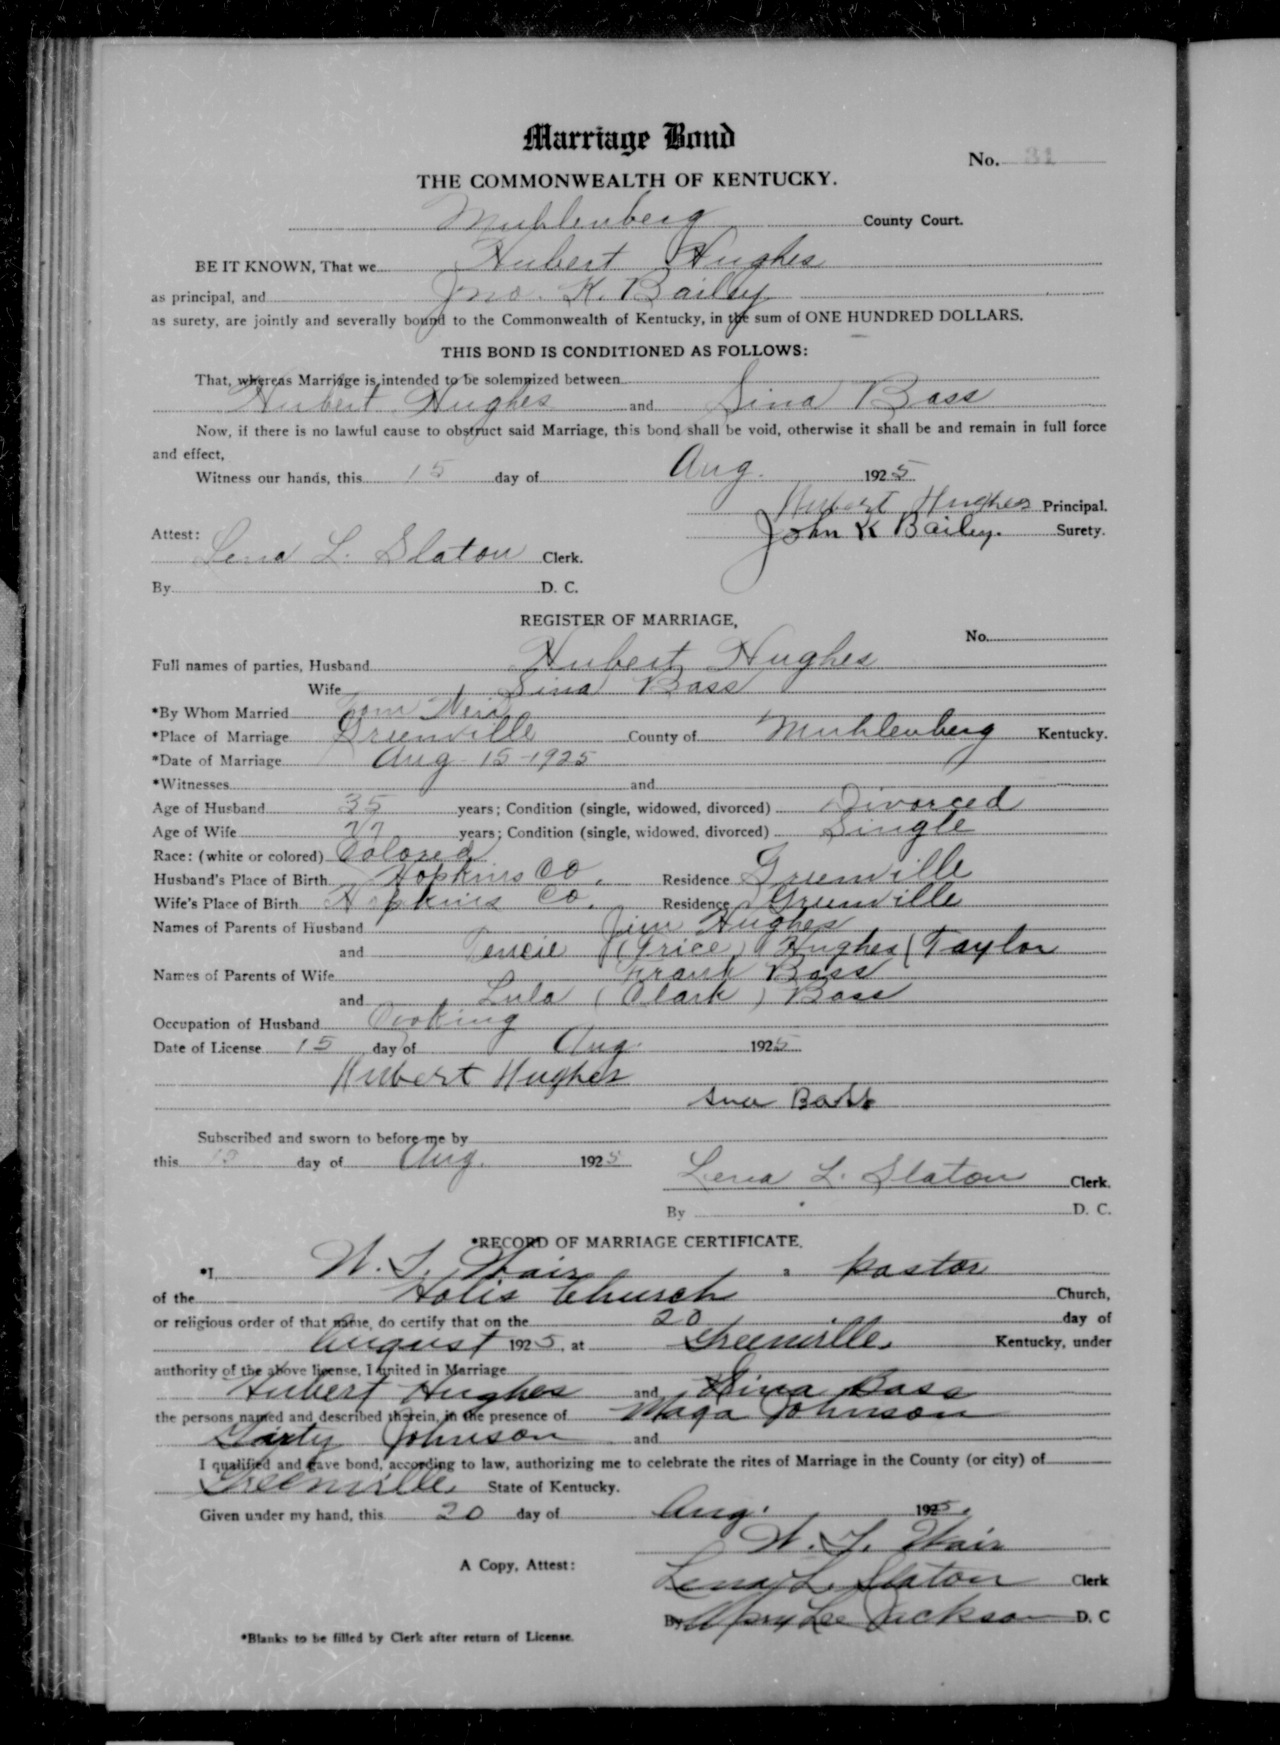 Marriage Bond
No. 31
THE COMMONWEALTH OF KENTUCKY.
Muhlenberg County Court.
BE IT KNOWN, That we Hubert Hughes
as principal, and Jno. K. Bailey
as surety, are jointly and severally bound to the Commonwealth of Kentucky, in the sum of ONE HUNDRED DOLLARS.
THIS BOND IS CONDITIONED AS FOLLOWS:
That, whereas Marriage is intended to be solemnized between
Hubert Hughes and Sina Bass
Now, if there is no lawful cause to obstruct said Marriage, this bond shall be void, otherwise it shall be and remain in full force
and effect,
Witness our hands, this 15 day of Aug. 1925
Hubert Hughes Principal.
John K Bailey. Surety.
Attest:
Lena L. Slaton Clerk.
By D. C.
REGISTER OF MARRIAGE,
No.
Full names of parties, Husband Hubert Hughes
Wife Sina Bass
*By Whom Married Tom
*Place of Marriage Greenville County of Muhlenberg Kentucky.
*Date of Marriage Aug - 15 - 1925
*Witnesses and
Age of Husband 35 years; Condition (single, widowed, divorced) Divorced
Age of Wife years; Condition (single, widowed, divorced) Single
Race: (white or colored) Colored
Husband's Place of Birth Hopkins Co. Residence Greenville
Wife's Place of Birth Hopkins Co. Residence Greenville
Names of Parents of Husband Jim Hughes
and (Price) Hughes (Taylor
Names of Parents of Wife Frank Bass
and Lula (Clark) Bass
Occupation of Husband Cooking
Date of License 15 day of Aug. 1925
Hubert Hughes
Bass
Subscribed and sworn to before me by
this 15 day of Aug. 1925
Lena L. Slaton Clerk.
By D. C.
*RECORD OF MARRIAGE CERTIFICATE.
*I, W. T. Wair a pastor
of the Church Church,
or religious order of that name, do certify that on the 20 day of
August 1925, at Greenville. Kentucky, under
authority of the above license, I united in Marriage
Hubert Hughes and Sina Bass
the persons named and described therein, in the presence of Maga Johnson
Johnson and
I qualified and gave bond, according to law, authorizing me to celebrate the rites of Marriage in the County (or city) of
Greenville. State of Kentucky.
Given under my hand, this 20 day of Aug. 1925.
W. T. Wair
A Copy, Attest:
Lena L. Slaton Clerk
By Mary Lee Jackson D. C
*Blanks to be filled by Clerk after return of License.